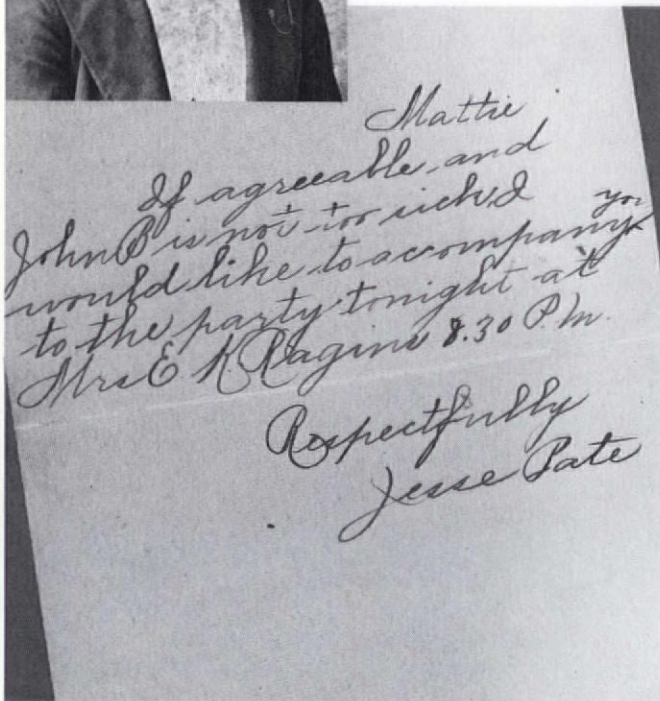 Mattie
If agreeable and
John B is not too sick I
would like to accompany you
to the party tonight at
Mrs E K Ragins 8.30 P.M.
Respectfully
Jesse Pate